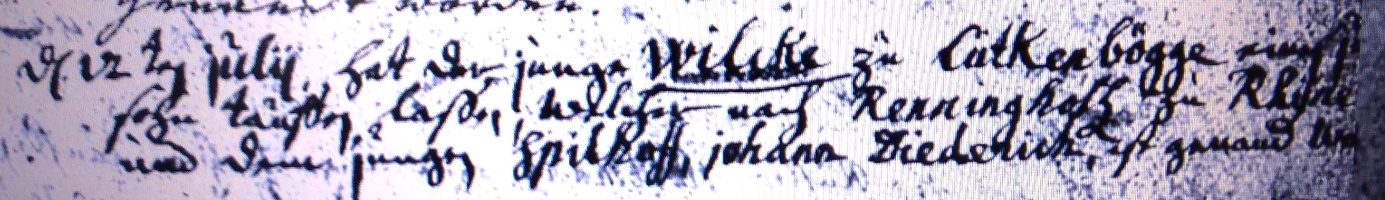 genennt worden.
d. 12 ten julij, hat der junge Wilcke zu Lütkenbögge einen
sohn täuffen laßen, welcher nach Renninghoff zu Rhyne
und dem jungen Spilhoff, johann Diederich, ist genand